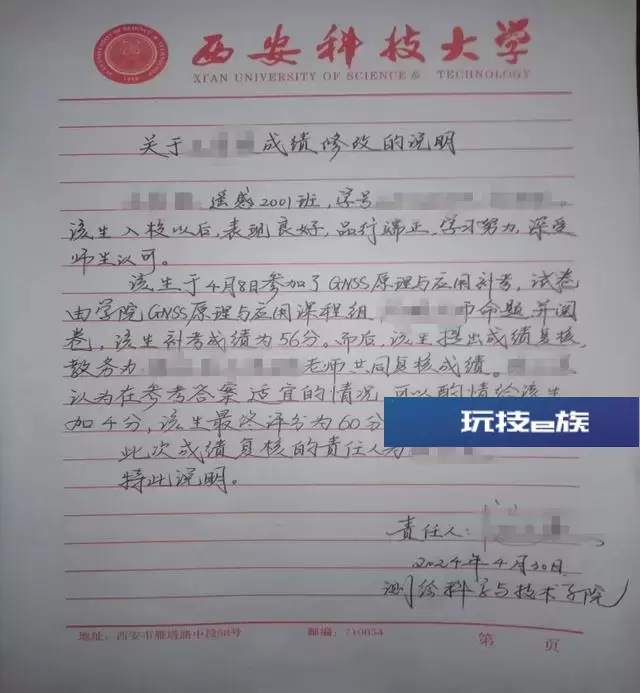 西安科技大学
XI'AN UNIVERSITY OF SCIENCE & TECHNOLOGY
关于 成绩修改的说明
遥感2001班,学号 .
该生入校以后,表现良好,品行端正,学习努力,深受
师生认可。
该生于4月8日参加了GNSS原理与应用补考,试卷
由学院GNSS原理与应用课程组 师命题并阅
卷,该生补考成绩为56分。而后,该生提出成绩复核,
教务办 老师共同复核成绩。
认为在参考答案适宜的情况,可以酌情给该生
加4分,该生最终评分为60分
玩技e族
此次成绩复核的责任人为
特此说明。
责任人:
2024年4月30日
测绘科学与技术学院
地址:西安市雁塔路中段58号 邮编:710054 第 页